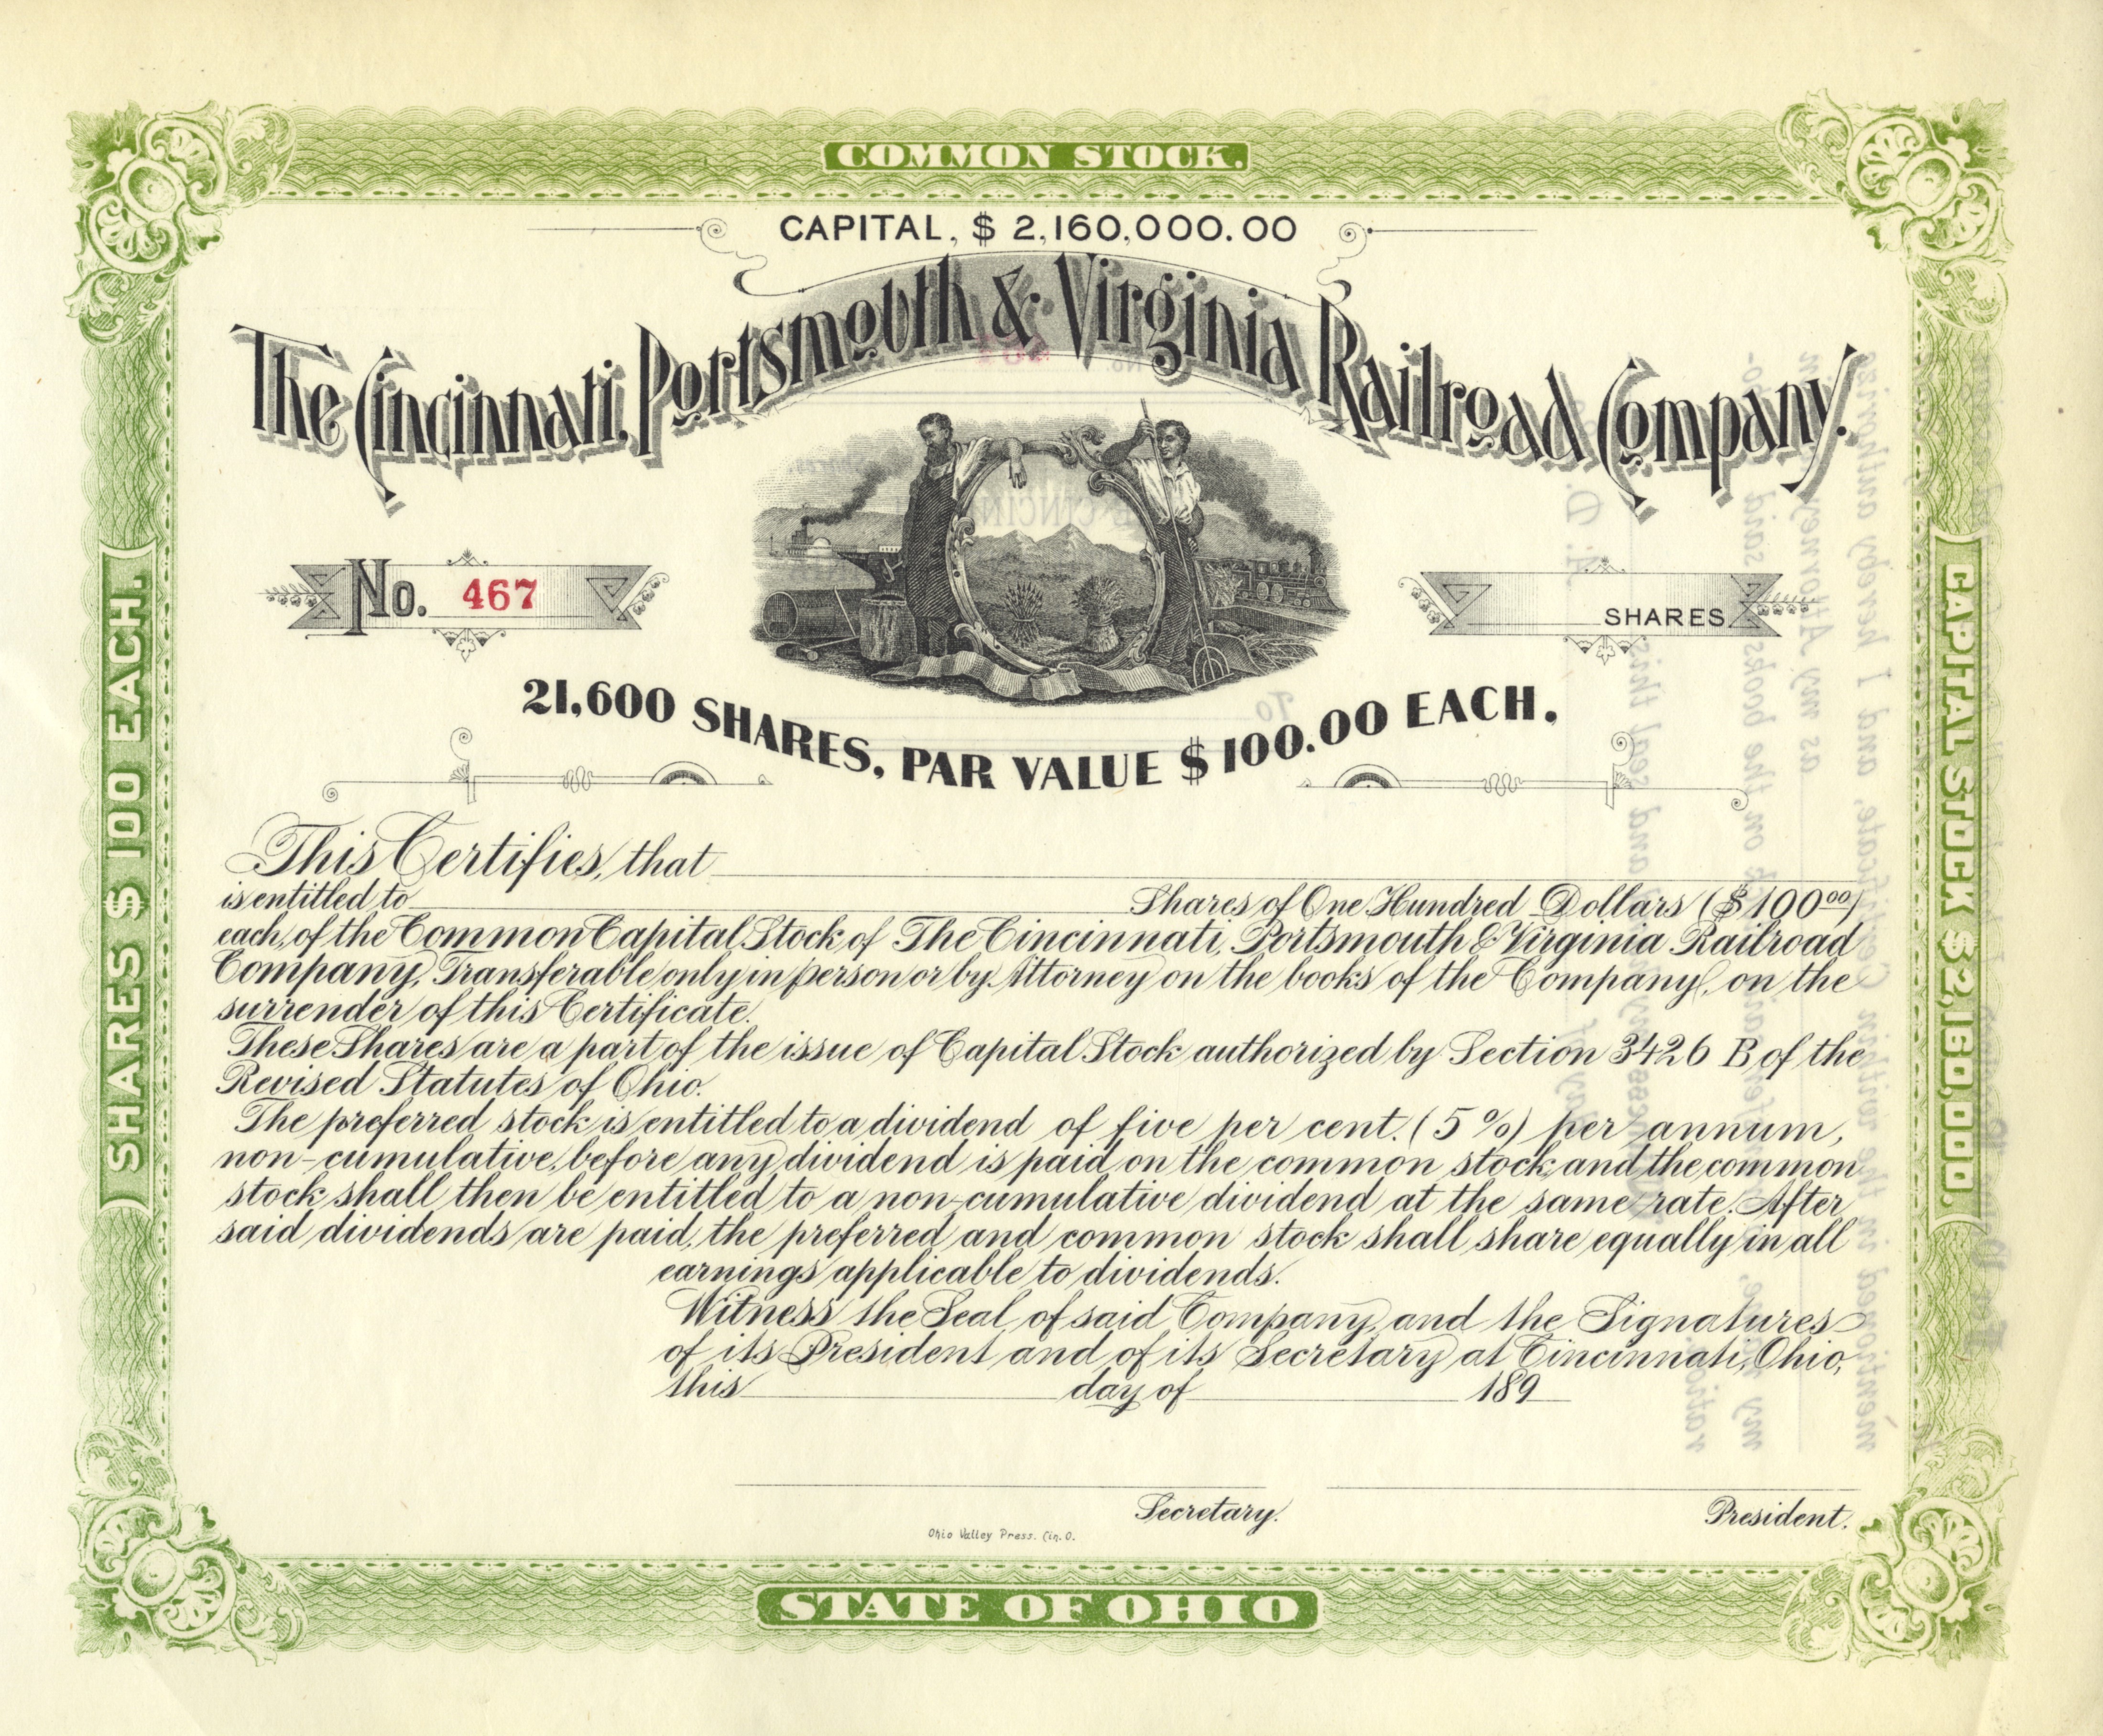 COMMON STOCK.
CAPITAL, $ 2,160,000.00
The Cincinnati, Portsmouth & Virginia Railroad Company.
No. 467
SHARES
21,600 SHARES, PAR VALUE $100.00 EACH.
This Certifies, that
is entitled to Shares of One Hundred Dollars ($100 00)
each, of the Common Capital Stock of The Cincinnati, Portsmouth & Virginia Railroad
Company, Transferable only in person or by Attorney on the books of the Company, on the
surrender of this Certificate.
These Shares are a part of the issue of Capital Stock authorized by Section 3426 B of the
Revised Statutes of Ohio.
The preferred stock is entitled to a dividend of five per cent. (5%) per annum,
non-cumulative, before any dividend is paid on the common stock, and the common
stock shall then be entitled to a non-cumulative dividend at the same rate. After
said dividends are paid, the preferred and common stock shall share equally in all
earnings applicable to dividends.
Witness the Seal of said Company, and the Signatures
of its President and of its Secretary at Cincinnati, Ohio,
this day of 189
Secretary. President.
Ohio Valley Press. Cin. O.
STATE OF OHIO
SHARES $ 100 EACH.
CAPITAL STOCK $2,160,000.